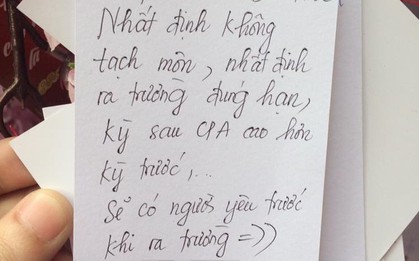 Nhất định không
tạch môn, nhất định
ra trường đung hạn,
kỳ sau CPA cao hơn
kỳ trước,...
Sẽ có người yêu trước
khi ra trường =))